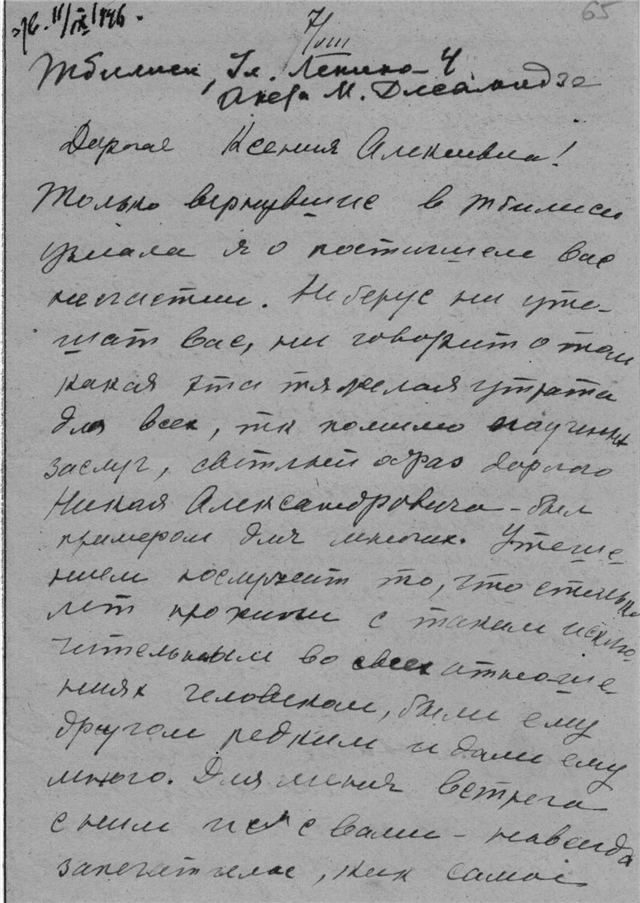 65
11/IX 1946.
7/VIII
Тбилиси, Ул. Ленина 4
Опера М.
Дорогая Ксения Алексеевна!
Только вернувшись в Тбилиси
узнала я о постигшем Вас
несчастии. Не берус ни уте-
шат Вас, ни говорит о том
какая эта тяжелая утрата
для всех, тк помимо научных
заслуг, светлый образ дорогого
Николая Александровича - был
примером для многих. Утеше-
нием послужит то, что столько
лет прожили с таким исклю-
чительным во всех отноше-
ниях человеком, были ему
другом редким и дали ему
много. Для меня встреча
с ним и с Вами - навсегда
запечатлелас, как самое